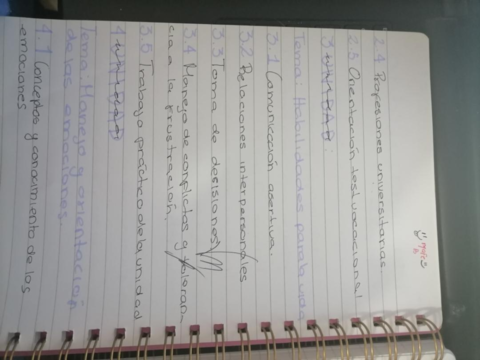 2.4 Profesiones universitarias.
2.5 Orientación test vocacional
3 UNIDAD:
Tema: Habilidades para la vida
3.1 Comunicación asertiva.
3.2 Relaciones interpersonales
3.3 Toma de decisiones
3.4 Manejo de conflictos y toleran
cia a la frustración.
3.5 Trabajo práctico de la unidad
4 UNIDAD
Tema: Manejo y orientación
de las emociones.
4.1 Conceptos y conocimiento de los
emociones